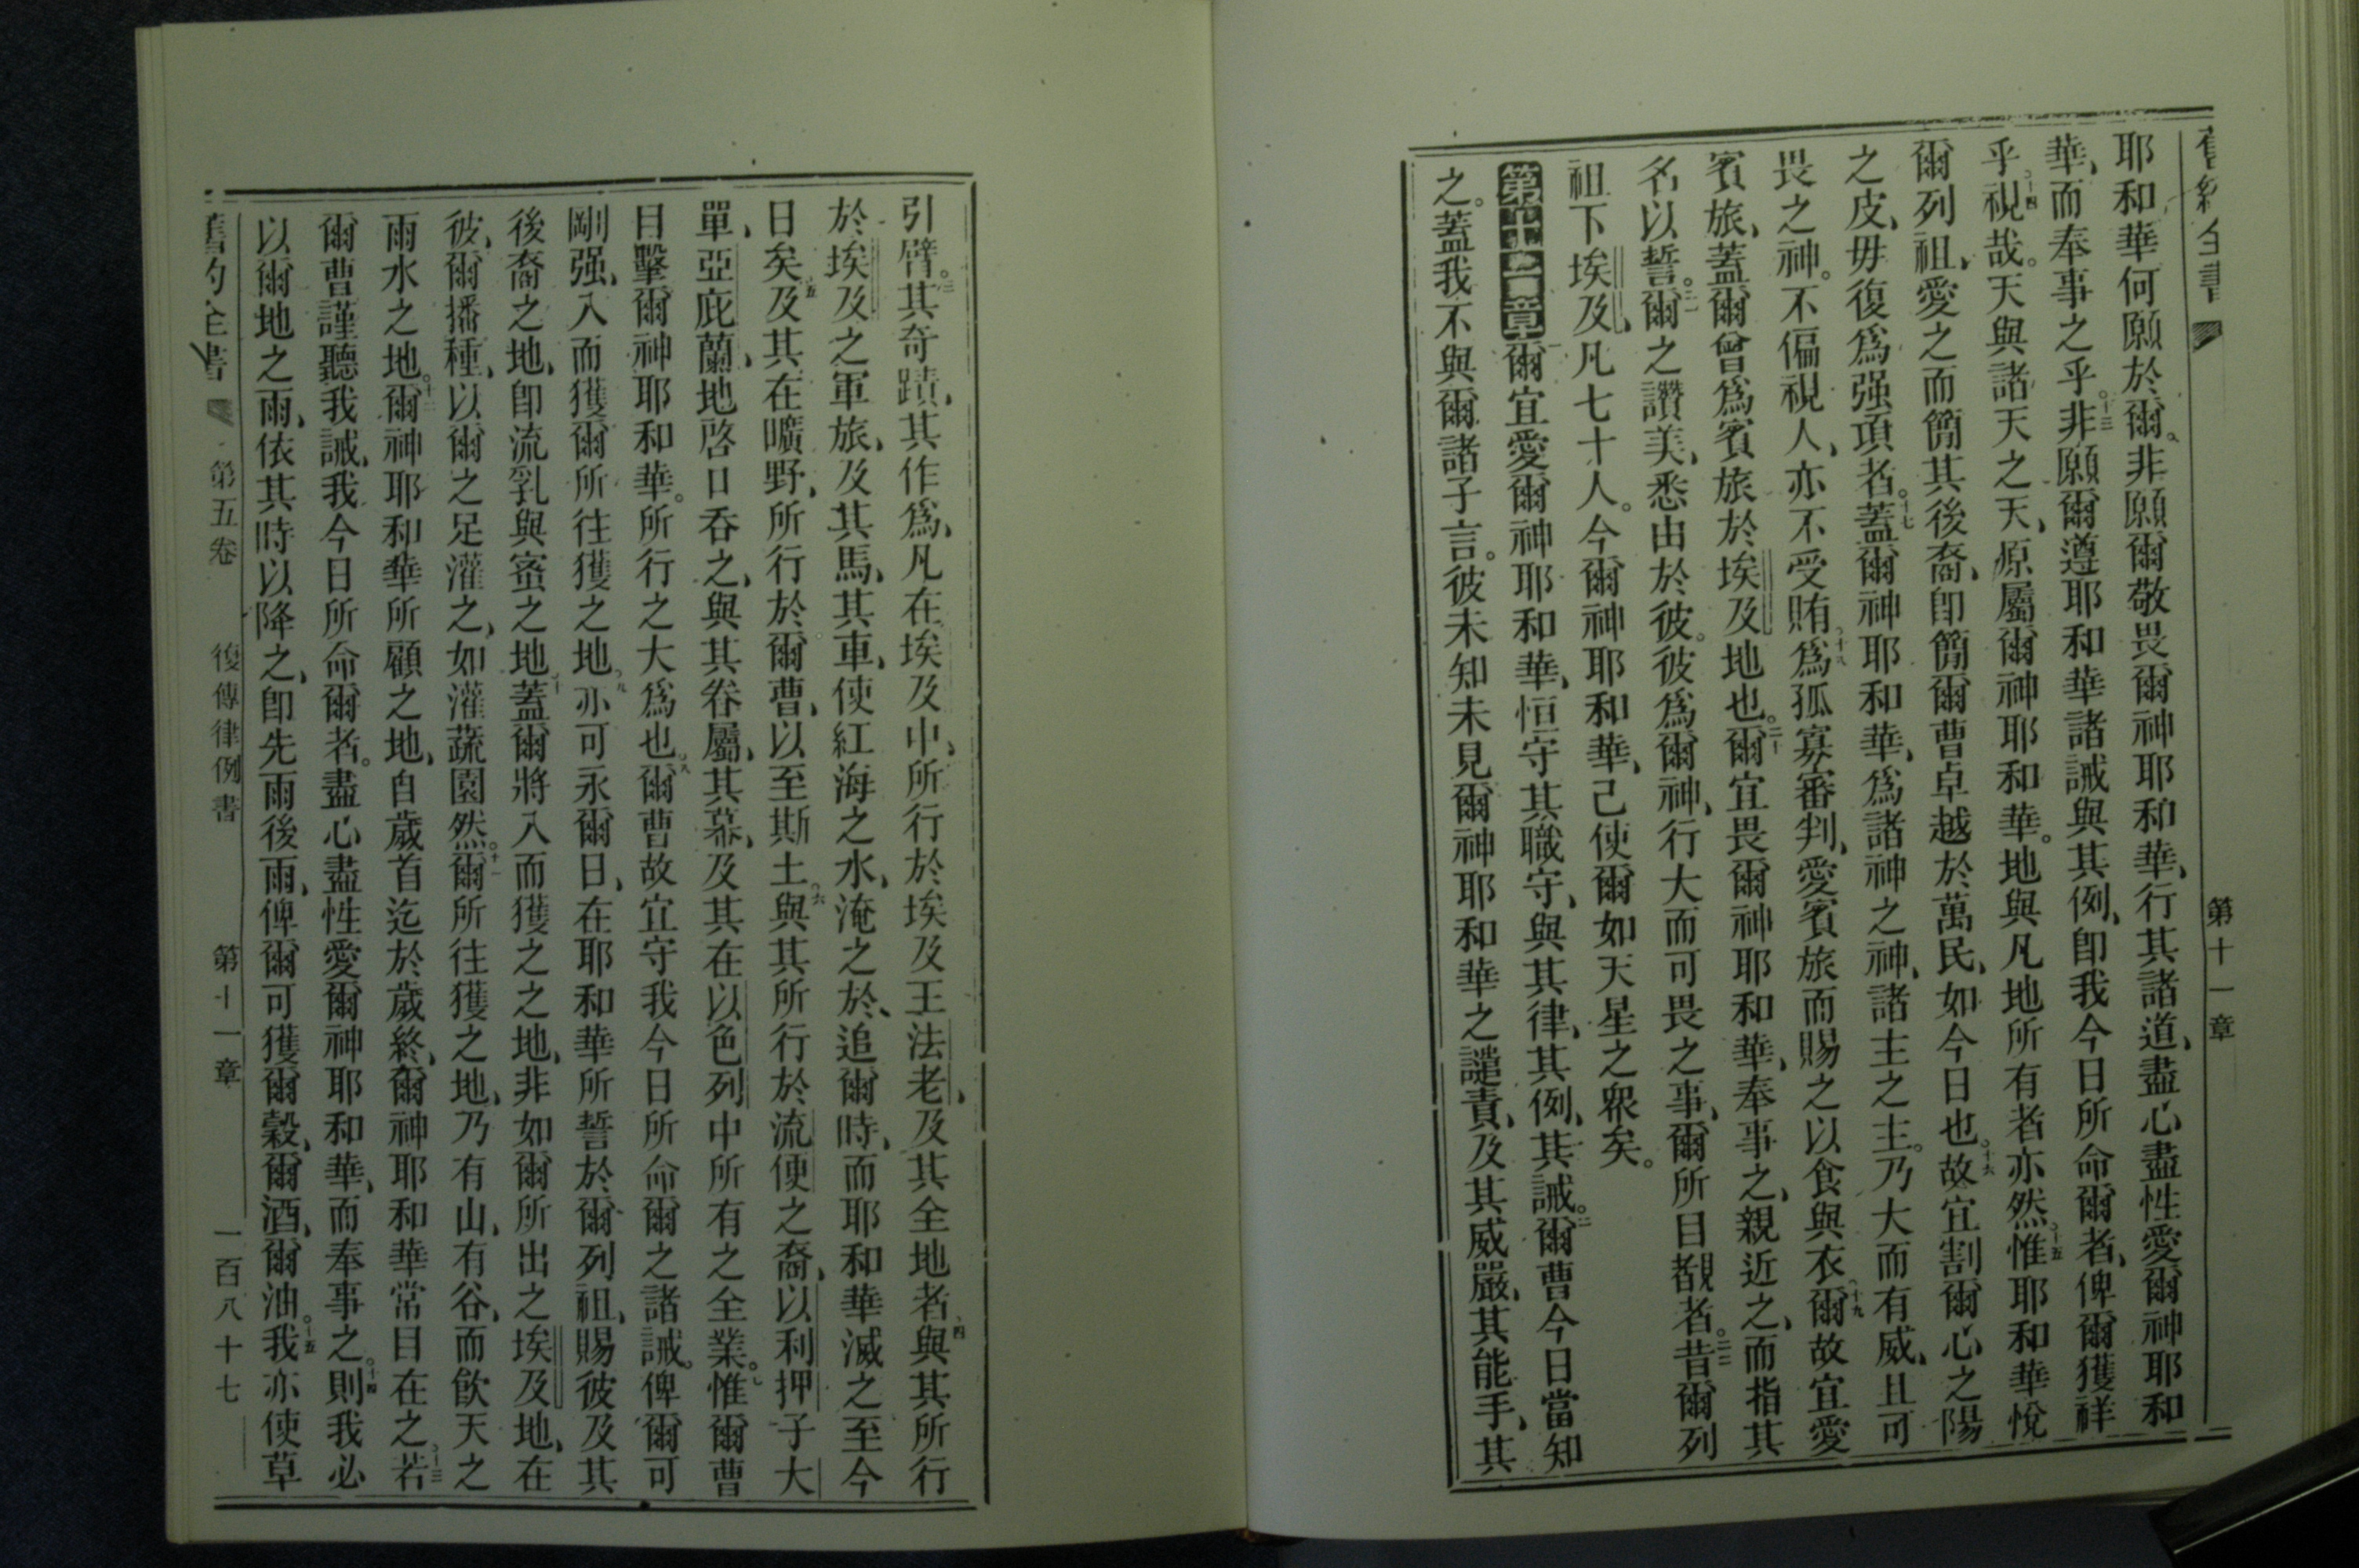 舊約全書 第十一章
耶和華何願於爾、非願爾敬畏爾神耶和華、行其諸道、盡心盡性愛爾神耶和
華、而奉事之乎。十三非願爾遵耶和華諸誡與其例、卽我今日所命爾者、俾爾獲祥
乎。十四視哉。天與諸天之天、原屬爾神耶和華。地與凡地所有者亦然。十五惟耶和華悅
爾列祖、愛之而簡其後裔、卽簡爾曹卓越於萬民、如今日也。十六故宜割爾心之陽
之皮、毋復爲强項者。十七蓋爾神耶和華、爲諸神之神、諸主之主。乃大而有威、且可
畏之神。不偏視人、亦不受賄。十八爲孤寡審判、愛賓旅而賜之以食與衣。十九爾故宜愛
賓旅、蓋爾曾爲賓旅於埃及地也。二十爾宜畏爾神耶和華、奉事之、親近之、而指其
名以誓。二一爾之讚美、悉由於彼。彼爲爾神、行大而可畏之事、爾所目覩者。二二昔爾列
祖下埃及、凡七十人。今爾神耶和華、己使爾如天星之衆矣。
第十一章爾宜愛爾神耶和華、恒守其職守、與其律、其例、其誡。二爾曹今日當知
之。蓋我不與爾諸子言。彼未知未見爾神耶和華之譴責、及其威嚴、其能手、其
引臂。三其奇蹟、其作爲、凡在埃及中、所行於埃及王法老、及其全地者、四與其所行
於埃及之軍旅、及其馬、其車、使紅海之水、淹之於、追爾時、而耶和華滅之至今
日矣。五及其在曠野、所行於爾曹、以至斯土。六與其所行於流便之裔、以利押子大
單、亞庇蘭、地啓口吞之、與其眷屬、其幕、及其在以色列中所有之全業。七惟爾曹
目擊爾神耶和華。所行之大爲也。八爾曹故宜守我今日所命爾之諸誡。俾爾可
剛强、入而獲爾所往獲之地。九亦可永爾日、在耶和華所誓於爾列祖、賜彼及其
後裔之地、卽流乳與蜜之地。十蓋爾將入而獲之之地、非如爾所出之埃及地、在
彼、爾播種、以爾之足灌之、如灌蔬園然。十一爾所往獲之地、乃有山、有谷、而飮天之
雨水之地。十二爾神耶和華所顧之地、自歲首迄於歲終、爾神耶和華常目在之。十三若
爾曹謹聽我誡、我今日所命爾者。盡心盡性愛爾神耶和華、而奉事之。十四則我必
以爾地之雨、依其時以降之、卽先雨後雨、俾爾可獲爾穀、爾酒、爾油。十五我亦使草
舊約全書 第五卷 復傳律例書 第十一章 一百八十七